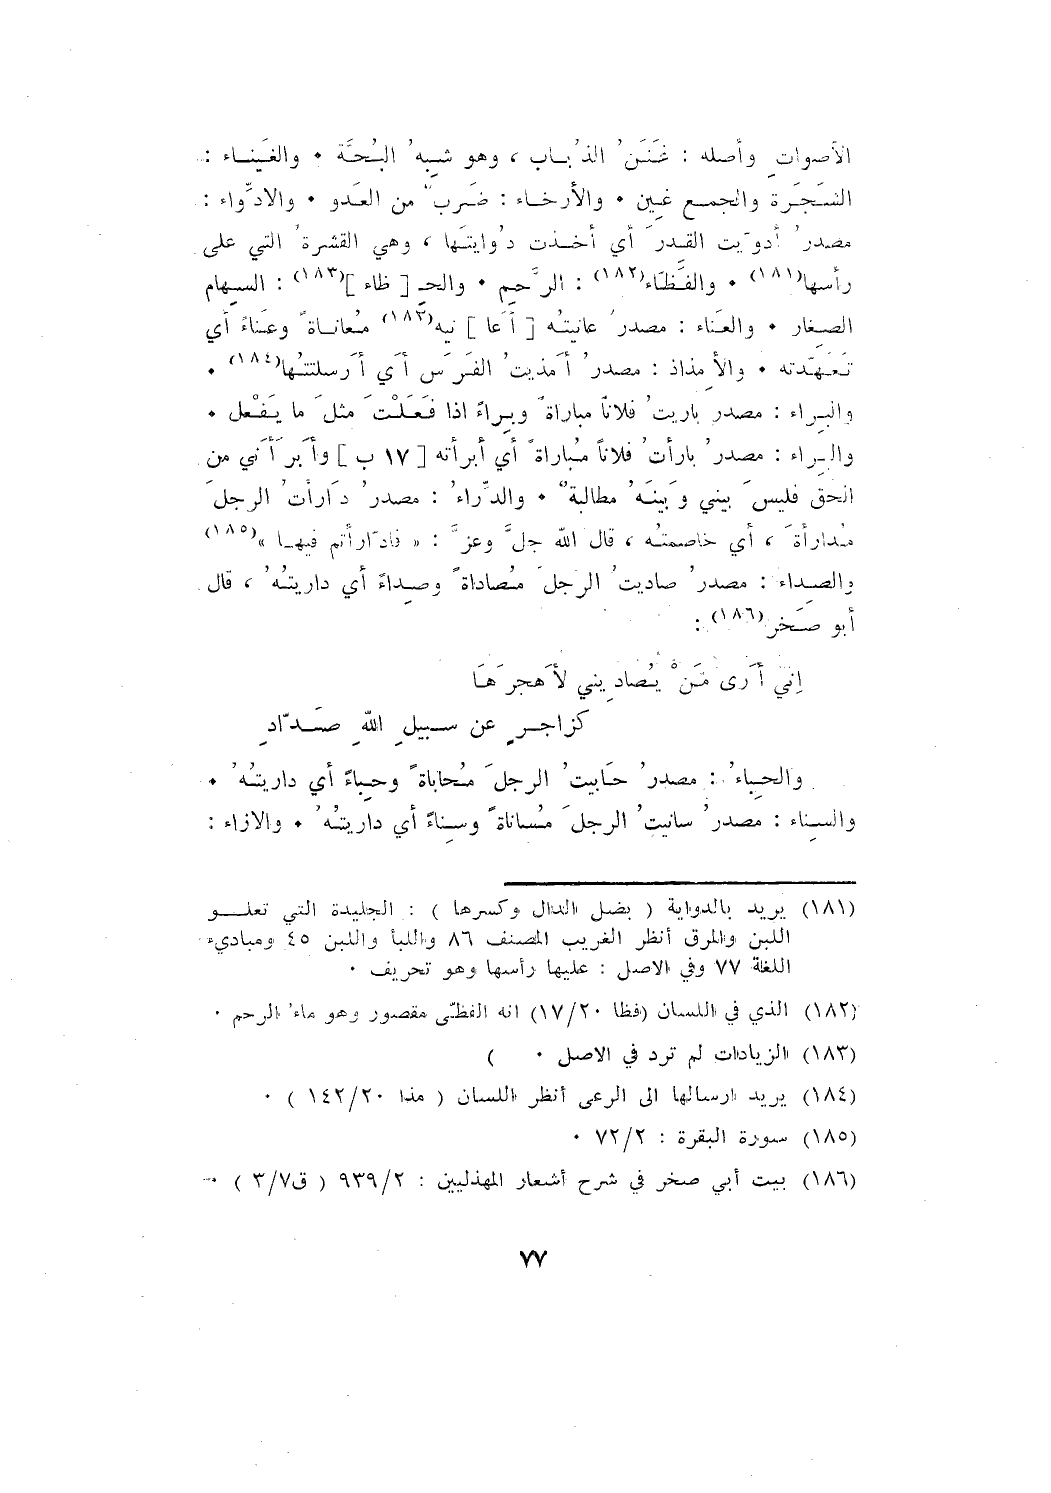 الأصواتِ وأصله : غَنَنُ الذُبـاب ، وهو شبِيهُ البُحَّة • والغَينـاء :
الشَجَرة والجمع غِين • والأرخـاء : ضَربٌ من العَدو • والادّواء :
مصدرُ أدوَيت القِدرَ أي أخـذت دُوايتَها ، وهي القشرةُ التي على
رأسها(١٨١) • والفَظَاء(١٨٢) : الرَّحِم • والحِـ [ ظاء ](١٨٣) : السِهام
الصغار • والعِناء : مصدرُ عانيتُه [ أعا ] نيه(١٨٣) مُعانـاةً وعِناءً أي
تَعَهّدته • والأِمذاذ : مصدرُ أمذيتُ الفَرَس أي أرسلتُها(١٨٤) •
والبِراء : مصدر باريتُ فلاناً مباراةً وبِراءً اذا فَعَلْتَ مثلَ ما يَفْعل •
والبِراء : مصدرُ بارأتُ فلاناً مُباراةً أي أبرأته [ ١٧ ب ] وأبرَأني من
الحق فليسَ بيني وَبَينَهُ مطالبةٌ • والدِّراءُ : مصدرُ دَارأتُ الرجلَ
مُدارأةَ ، أي خاصمتُه ، قال الله جلَّ وعزَّ : « فادّارأتم فيهـا »(١٨٥)
والصِداء : مصدرُ صاديتُ الرجلَ مُصاداةً وصِداءً أي داريتُهُ ، قال
أبو صَخر(١٨٦) :
إنّي أرَى مَنْ يُصادِيني لأَهجرَهَا
كزاجـرٍ عن سـبيلِ اللّهِ صَـدّادِ
والحِباءُ : مصدرُ حَابيتُ الرجلَ مُحاباةً وحِباءً أي داريتُهُ •
والسِناء : مصدرُ سانيتُ الرجلَ مُساناةً وسِناءً أي داريتُهُ • والازاء :
(١٨١) يريد بالدواية ( بضل الدال وكسرها ) : الجليدة التي تعلـو
اللبن والمرق أنظر الغريب المصنف ٨٦ واللبأ واللبن ٤٥ ومباديء
اللغة ٧٧ وفي الاصل : عليها رأسها وهو تحريف •
(١٨٢) الذي في اللسان (فظا ٢٠/١٧) انه الفظىّ مقصور وهو ماء الرحم •
(١٨٣) الزيادات لم ترد في الاصل • )
(١٨٤) يريد ارسالها الى الرعى أنظر اللسان ( مذا ٢٠/١٤٢ ) •
(١٨٥) سورة البقرة : ٢/٧٢ •
(١٨٦) بيت أبي صخر في شرح أشعار الهذليين : ٢/٩٣٩ ( ق٣/٧ ) •
٧٧